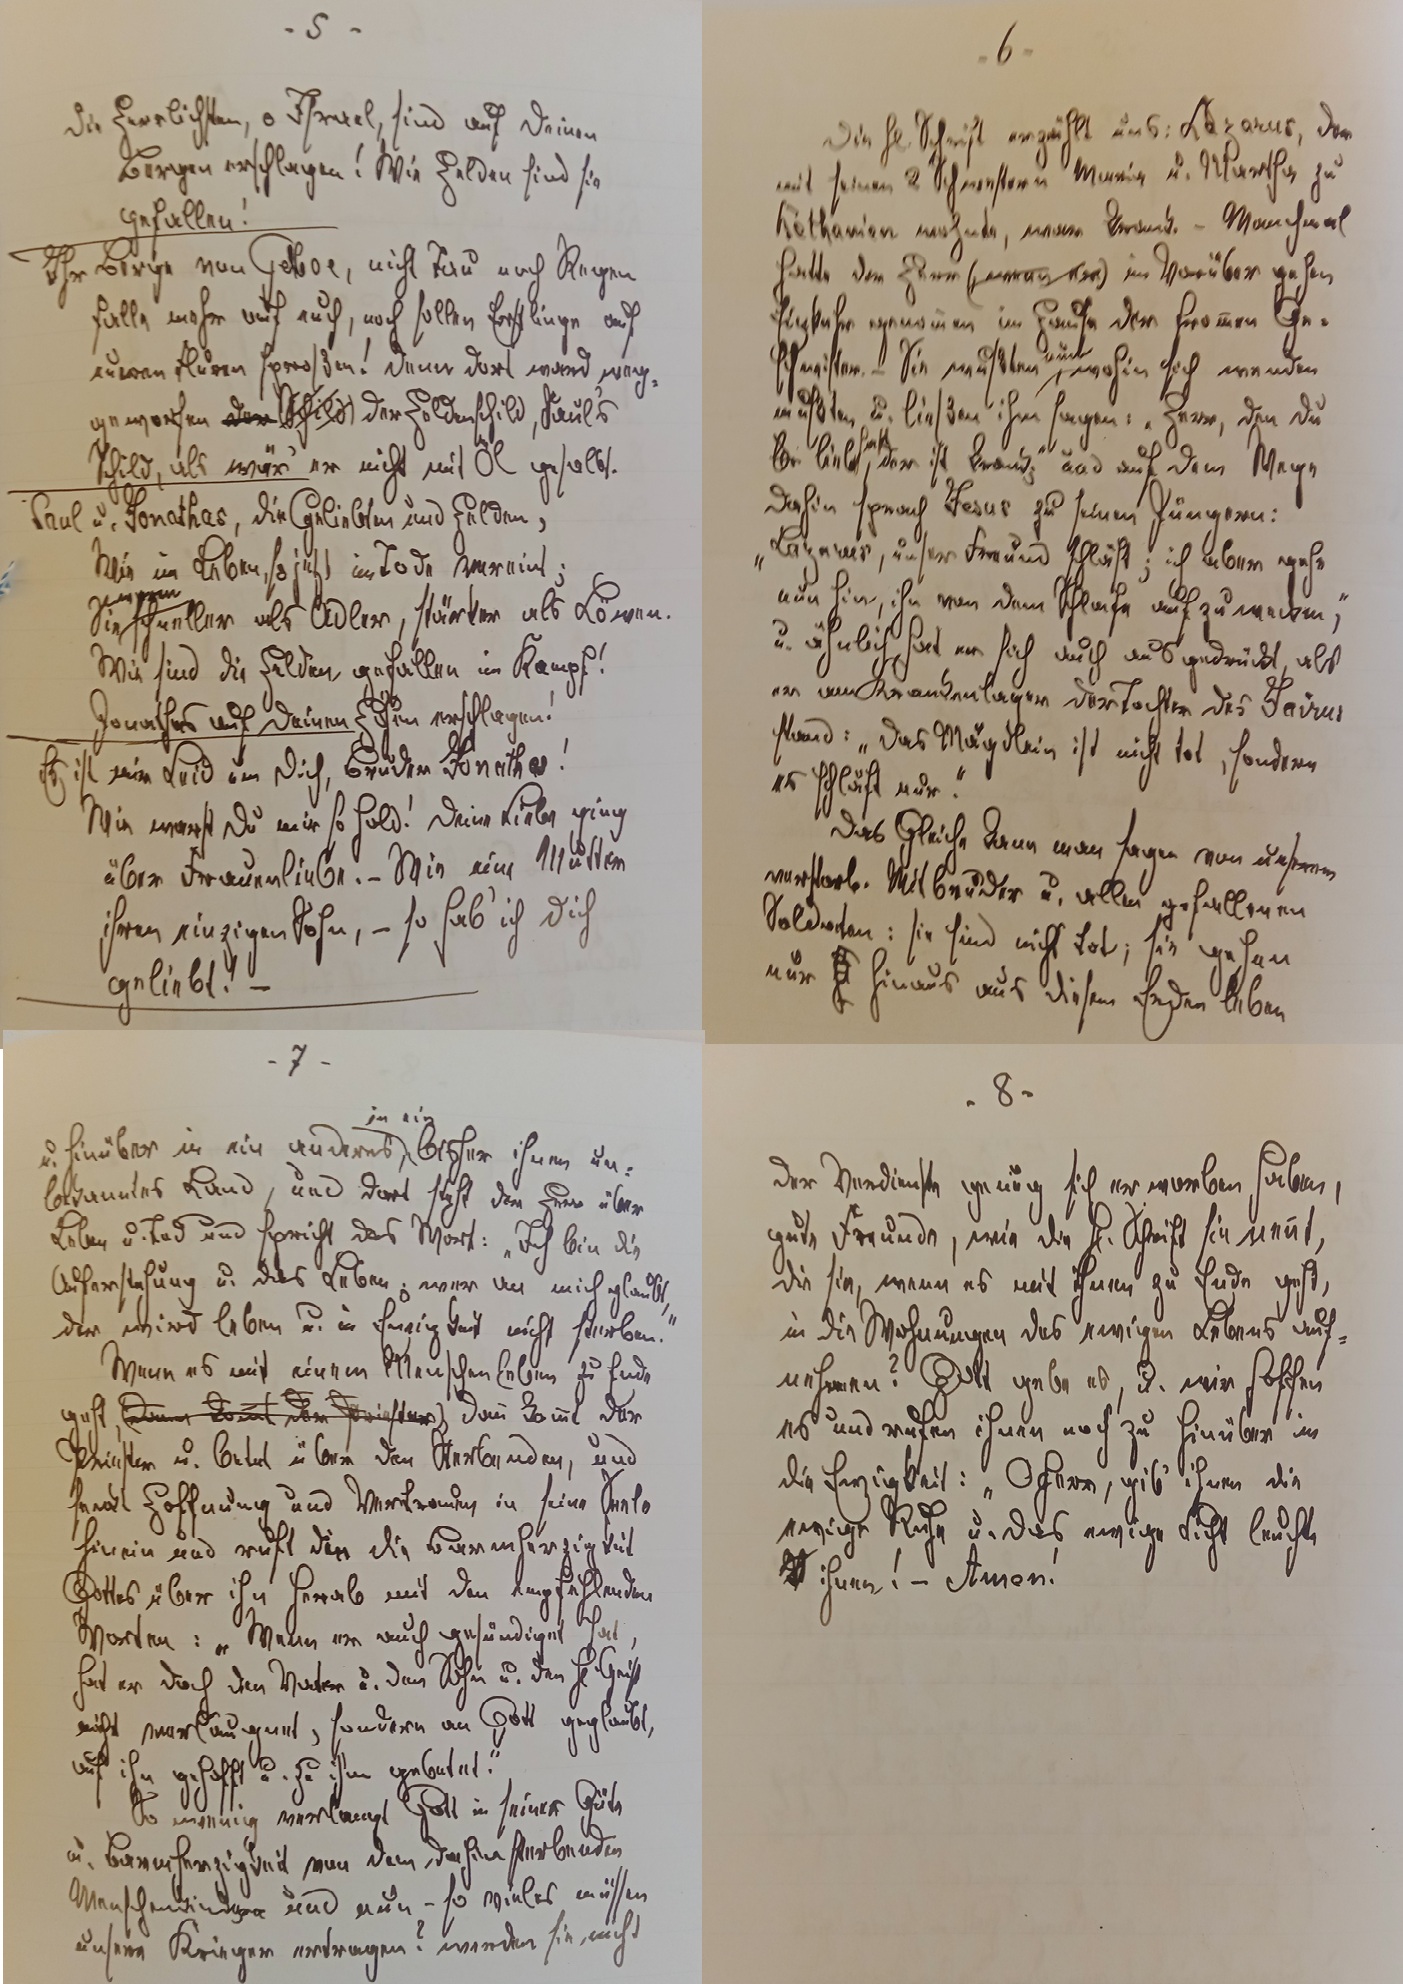 - 5 -
Die Herrlichsten, o Israel, sind auf deinen
Bergen erschlagen! Wie Helden sind sie
gefallen!
Ihr Berge von Gelboe, nicht Tau noch Regen
falle mehr auf euch, noch sollen Erstlinge auf
euren Fluren sprossen! Denn dort ward weg-
geworfen der Schild der Heldenschild, Saul's
Schild, als wär' er nicht mit Öl gesalbt.
Saul u. Jonathas, die Geliebten und Helden,
Wie im Leben, so jetzt im Tode vereint;
waren
Sie schneller als Adler, stärker als Löwen.
Wie sind die Helden gefallen im Kampf!
Jonathas auf deinen Höhen erschlagen!
Es ist mir Leid um dich, Bruder Jonathas!
Wie warst du mir so hold! Deine Liebe ging
über Frauenliebe. – Wie eine Mutter
ihren einzigen Sohn, – so hab' ich dich
geliebt! –
- 6 -
Die hl. Schrift erzählt uns: Lazarus, der
mit seinen 2 Schwestern Maria u. Martha zu
Bethanien wohnte, war krank. – Manchmal
hatte der Herr (wenn er) im Vorübergehen
Einkehr genommen im Hause der frommen Ge-
schwister. – Sie wußten nun, wohin sich wenden
mußten u. ließen ihm sagen: „Herr, den du
lieb hast, der ist krank;" und auf dem Wege
dahin sprach Jesus zu seinen Jüngern:
„Lazarus, unser Freund schläft; ich aber gehe
nun hin, ihn von dem Schlafe aufzuwecken,"
u. ähnlich hat er sich auch ausgedrückt, als
er am Krankenlager der Tochter des Jairus
stand: „Das Mägdlein ist nicht tot, sondern
es schläft nur."
Das Gleiche kann man sagen von unserem
verstorb. Mitbruder u. allen gefallenen
Soldaten: sie sind nicht tot; sie gehen
nur hinaus aus diesem Erdenleben
- 7 -
in ein
u. hinüber in ein anderes, bisher ihnen un-
bekanntes Land, und dort steht der Herr über
Leben u. Tod und spricht das Wort: „Ich bin die
Auferstehung u. das Leben; wer an mich glaubt,
der wird leben u. in Ewigkeit nicht sterben."
Wenn es mit einem Menschenleben zu Ende
geht, (dann kommt der Priester) dann kommt der
Priester u. betet über den Sterbenden, und
senkt Hoffnung und Vertrauen in seine Seele
hinein und ruft die Barmherzigkeit
Gottes über ihn herab mit den empfehlenden
Worten: „Wenn er auch gesündigt hat,
hat er doch den Vater u. den Sohn u. den hl. Geist
nicht verleugnet, sondern an Gott geglaubt,
auf ihn gehofft u. zu ihm gebetet."
So wenig verlangt Gott in seiner Güte
u. Barmherzigkeit von dem dahinsterbenden
Menschen und nun – so vieles müssen
unsere Krieger ertragen? werden sie nicht
- 8 -
der Verdienste genug sich erworben haben,
gute Freunde, wie die hl. Schrift sie nennt,
die sie, wenn es mit ihnen zu Ende geht,
in die Wohnungen des ewigen Lebens auf-
nehmen? Gott gebe es, u. wir hoffen
es und rufen ihnen noch zu hinüber in
die Ewigkeit: „O Herr, gib' ihnen die
ewige Ruhe u. das ewige Licht leuchte
ihnen! – Amen!